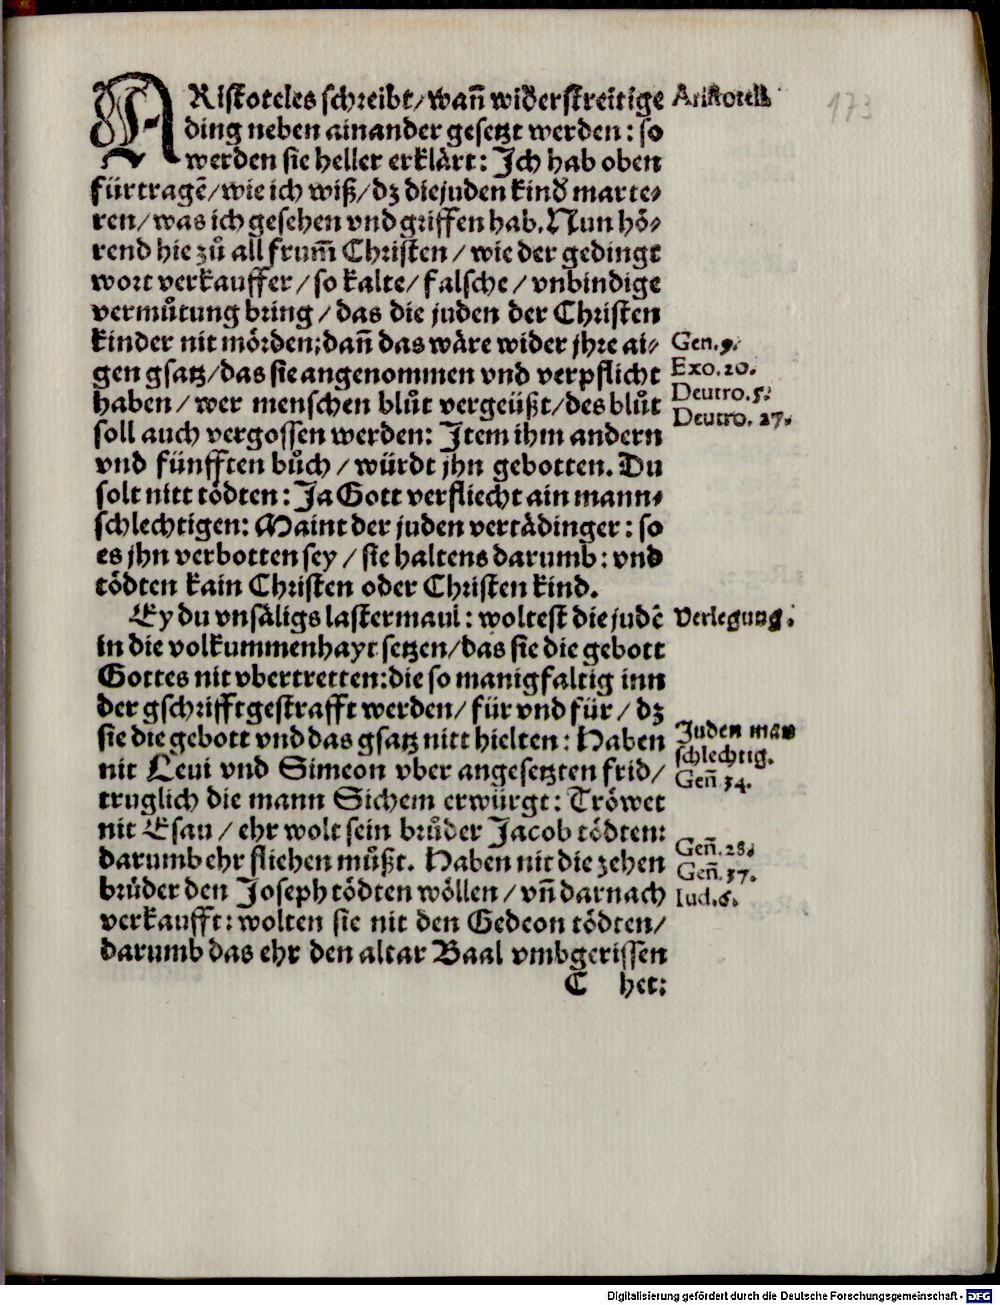 ARistoteles schreibt/wañ widerstreitige
ding neben ainander gesetzt werden: so
werden sie heller erklärt: Jch hab oben
fürtragẽ/wie ich wiß/dz diejuden kind marte⸗
ren/was ich gesehen vnd griffen hab. Nun hö⸗
rend hie zů all frum̃ Christen/wie der gedingt
wort verkauffer/so kalte/falsche/vnbindige
vermůtung bring/das die juden der Christen
kinder nit mörden; dañ das wäre wider jhre ai⸗
gen gsatz/das sie angenommen vnd verpflicht
haben/wer menschen blůt vergeüßt/des blůt
soll auch vergossen werden: Jtem ihm andern
vnd fünfften bůch/würdt jhn gebotten. Du
solt nitt tödten: Ja Gott verfliecht ain mann⸗
schlechtigen: Maint der juden vertädinger: so
es jhn verbotten sey/sie haltens darumb: vnd
tödten kain Christen oder Christen kind.
Ey du vnsäligs lastermaul: woltest die judẽ
in die volkummenhayt setzen/das sie die gebott
Gottes nit vbertretten: die so manigfaltig inn
der gschrifft gestrafft werden/für vnd für/dz
sie die gebott vnd das gsatz nitt hielten: Haben
nit Leui vnd Simeon vber angesetzten frid/
truglich die mann Sichem erwürgt: Tröwet
nit Esau/ehr wolt sein brůder Jacob tödten:
darumb ehr fliehen můßt. Haben nit die zehen
brüder den Joseph tödten wöllen/vñ darnach
verkaufft: wolten sie nit den Gedeon tödten/
darumb das ehr den altar Baal vmbgerissen
C het:
Aristotels
173
Gen.9.
Exo.20.
Deutro.5.
Deutro.27.
Verlegung.
Juden man
schlechtig.
Geñ 34.
Geñ.28.
Geñ.37.
Iud.6.
Digitalisierung gefördert durch die Deutsche Forschungsgemeinschaft - DFG